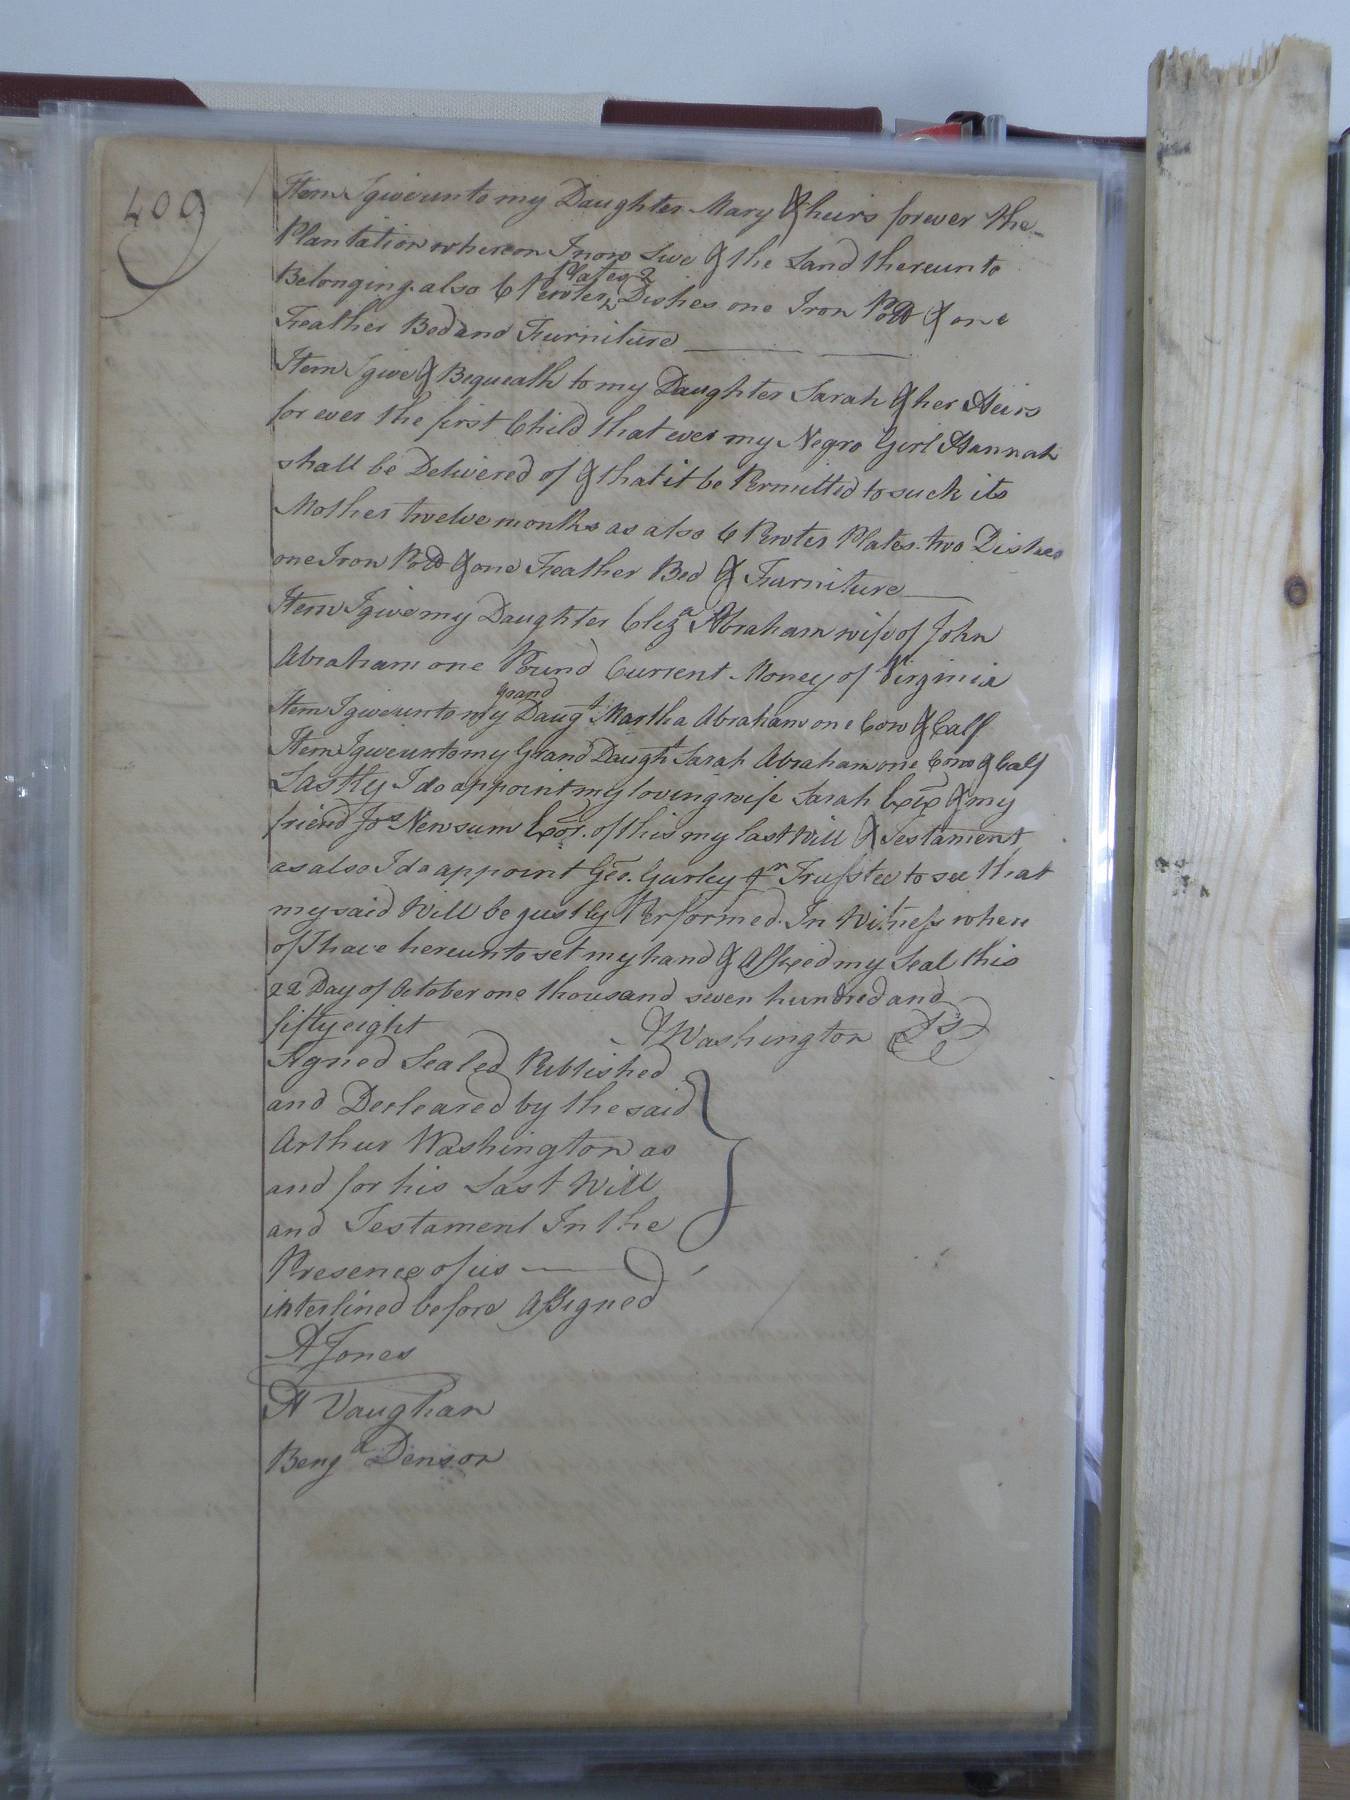 409
Item I give unto my Daughter Mary & heirs forever the
Plantation whereon I now Live & the Land thereunto
Plates 2
Belonging also 6 Pewter ^ Dishes one Iron Pott & one
Feather Bed and Furniture
Item I give & Bequeath to my Daughter Sarah & her Heirs
for ever the first Child that ever my Negro Girl Hannah
shall be Delivered of & that it be Permitted to suck its
Mother twelve months as also 6 Pewter Plates two Dishes
one Iron Pott & one Feather Bed & Furniture
Item I give my Daughter Eliza Abraham wife of John
Abraham one Pound Current Money of Virginia
grand
Item I give unto my Daugt Martha Abraham one Cow & Calf
Item I give unto my Grand Daught Sarah Abraham one Cow & Calf
Lastly I do appoint my loving wife Sarah Exix & my
friend Jos Newsum Exor. of this my last Will & Testament
as also I do appoint Geo. Gurley Jr Trusstee to see that
my said Will be justly Performed. In Witness where
of I have hereunto set my hand & Affixed my Seal this
22 Day of October one thousand seven hundred and
fifty eight A Washington LS
Signed Sealed Published
and Decleared by the said
Arthur Washington as
and for his Last Will
and Testament In the
Presence of us
interlined before Assigned
A Jones
H Vaughan
Benja Denson